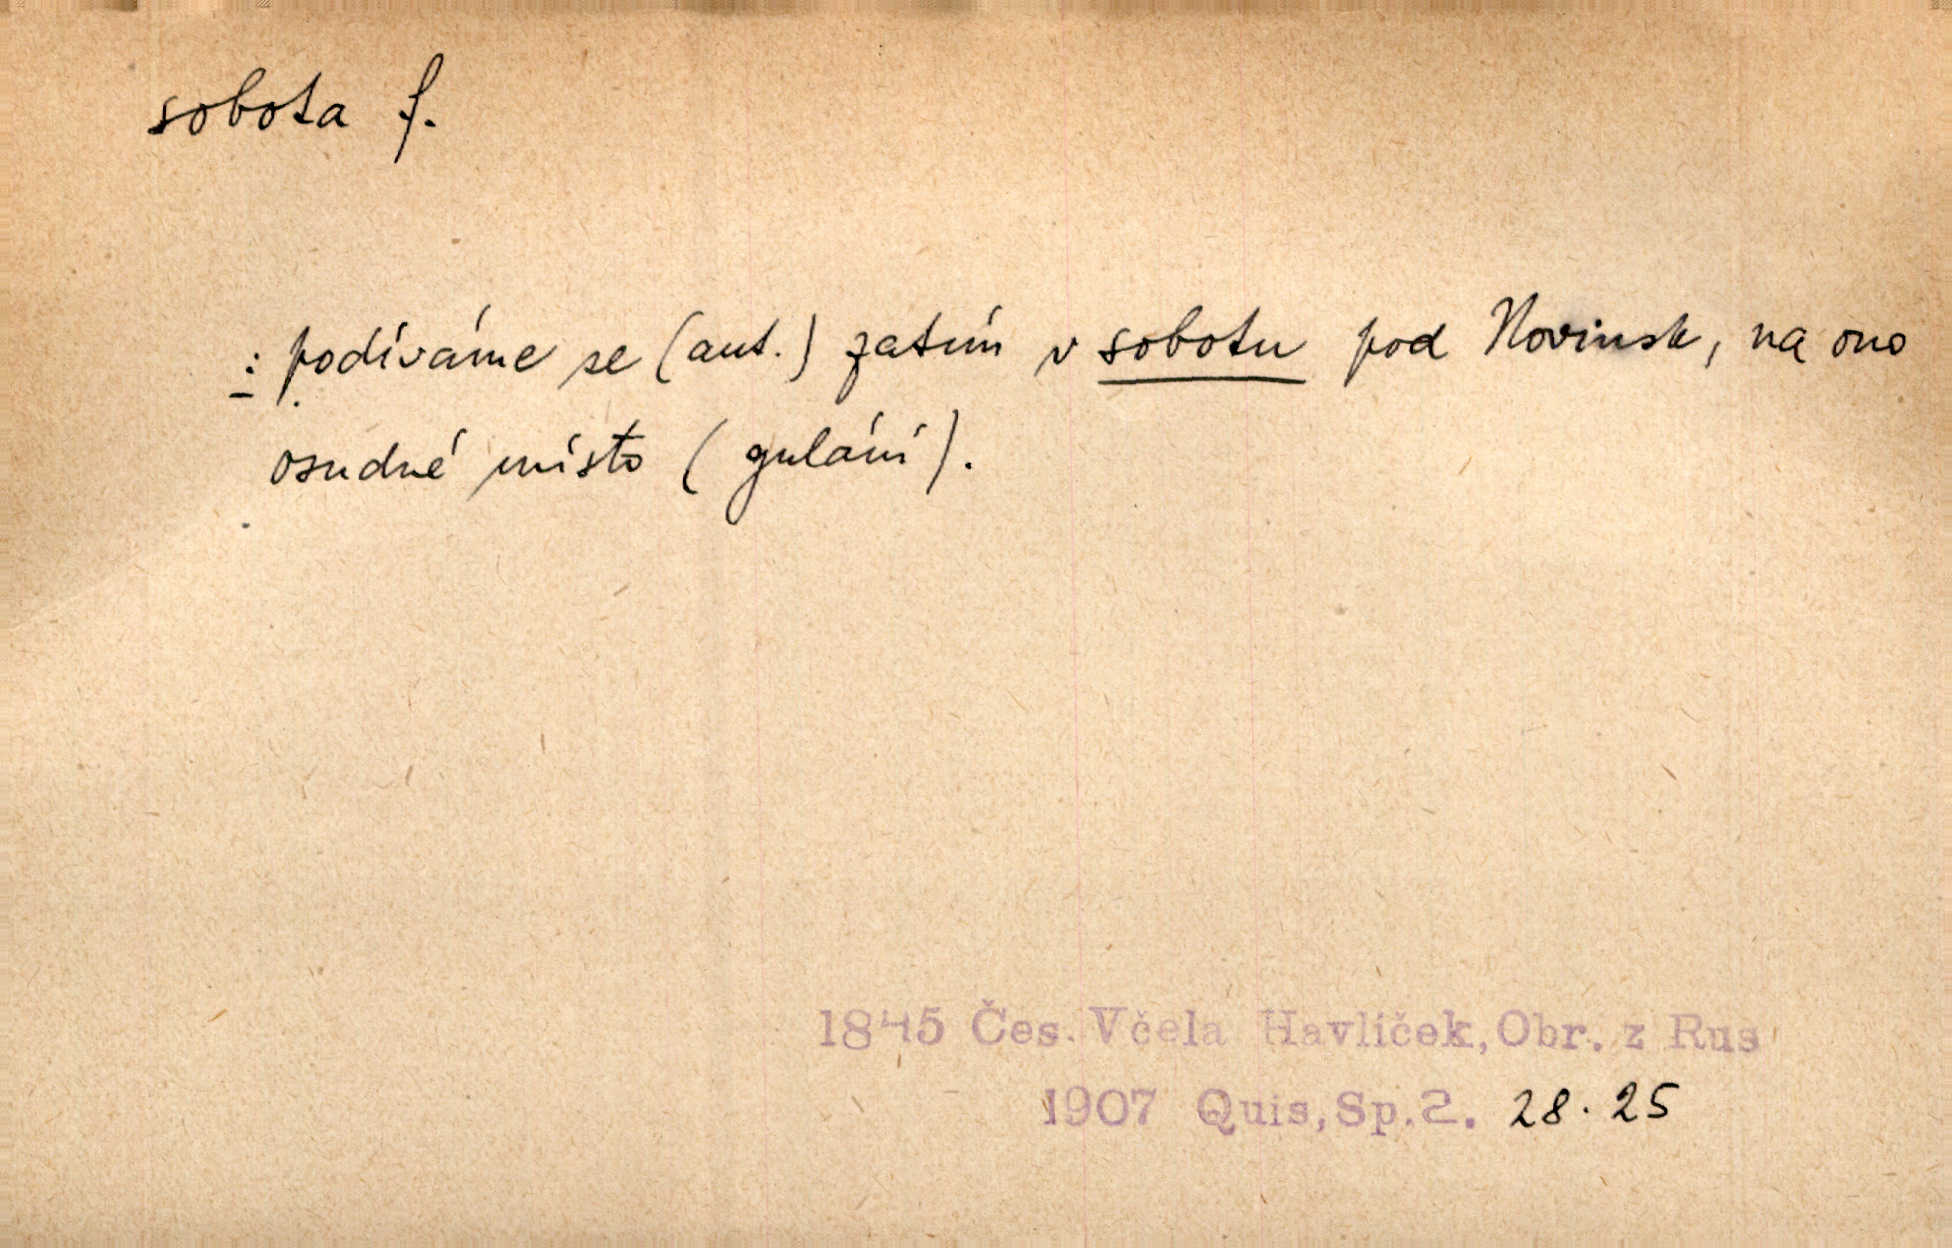 sobota f.
: podíváme se (aut.) zatím v sobotu pod Novinsk, na ono
osudné místo (gulání).
1845 Čes. Včela Havlíček, Obr. z Rus
1907 Quis, Sp. 2. 28. 25